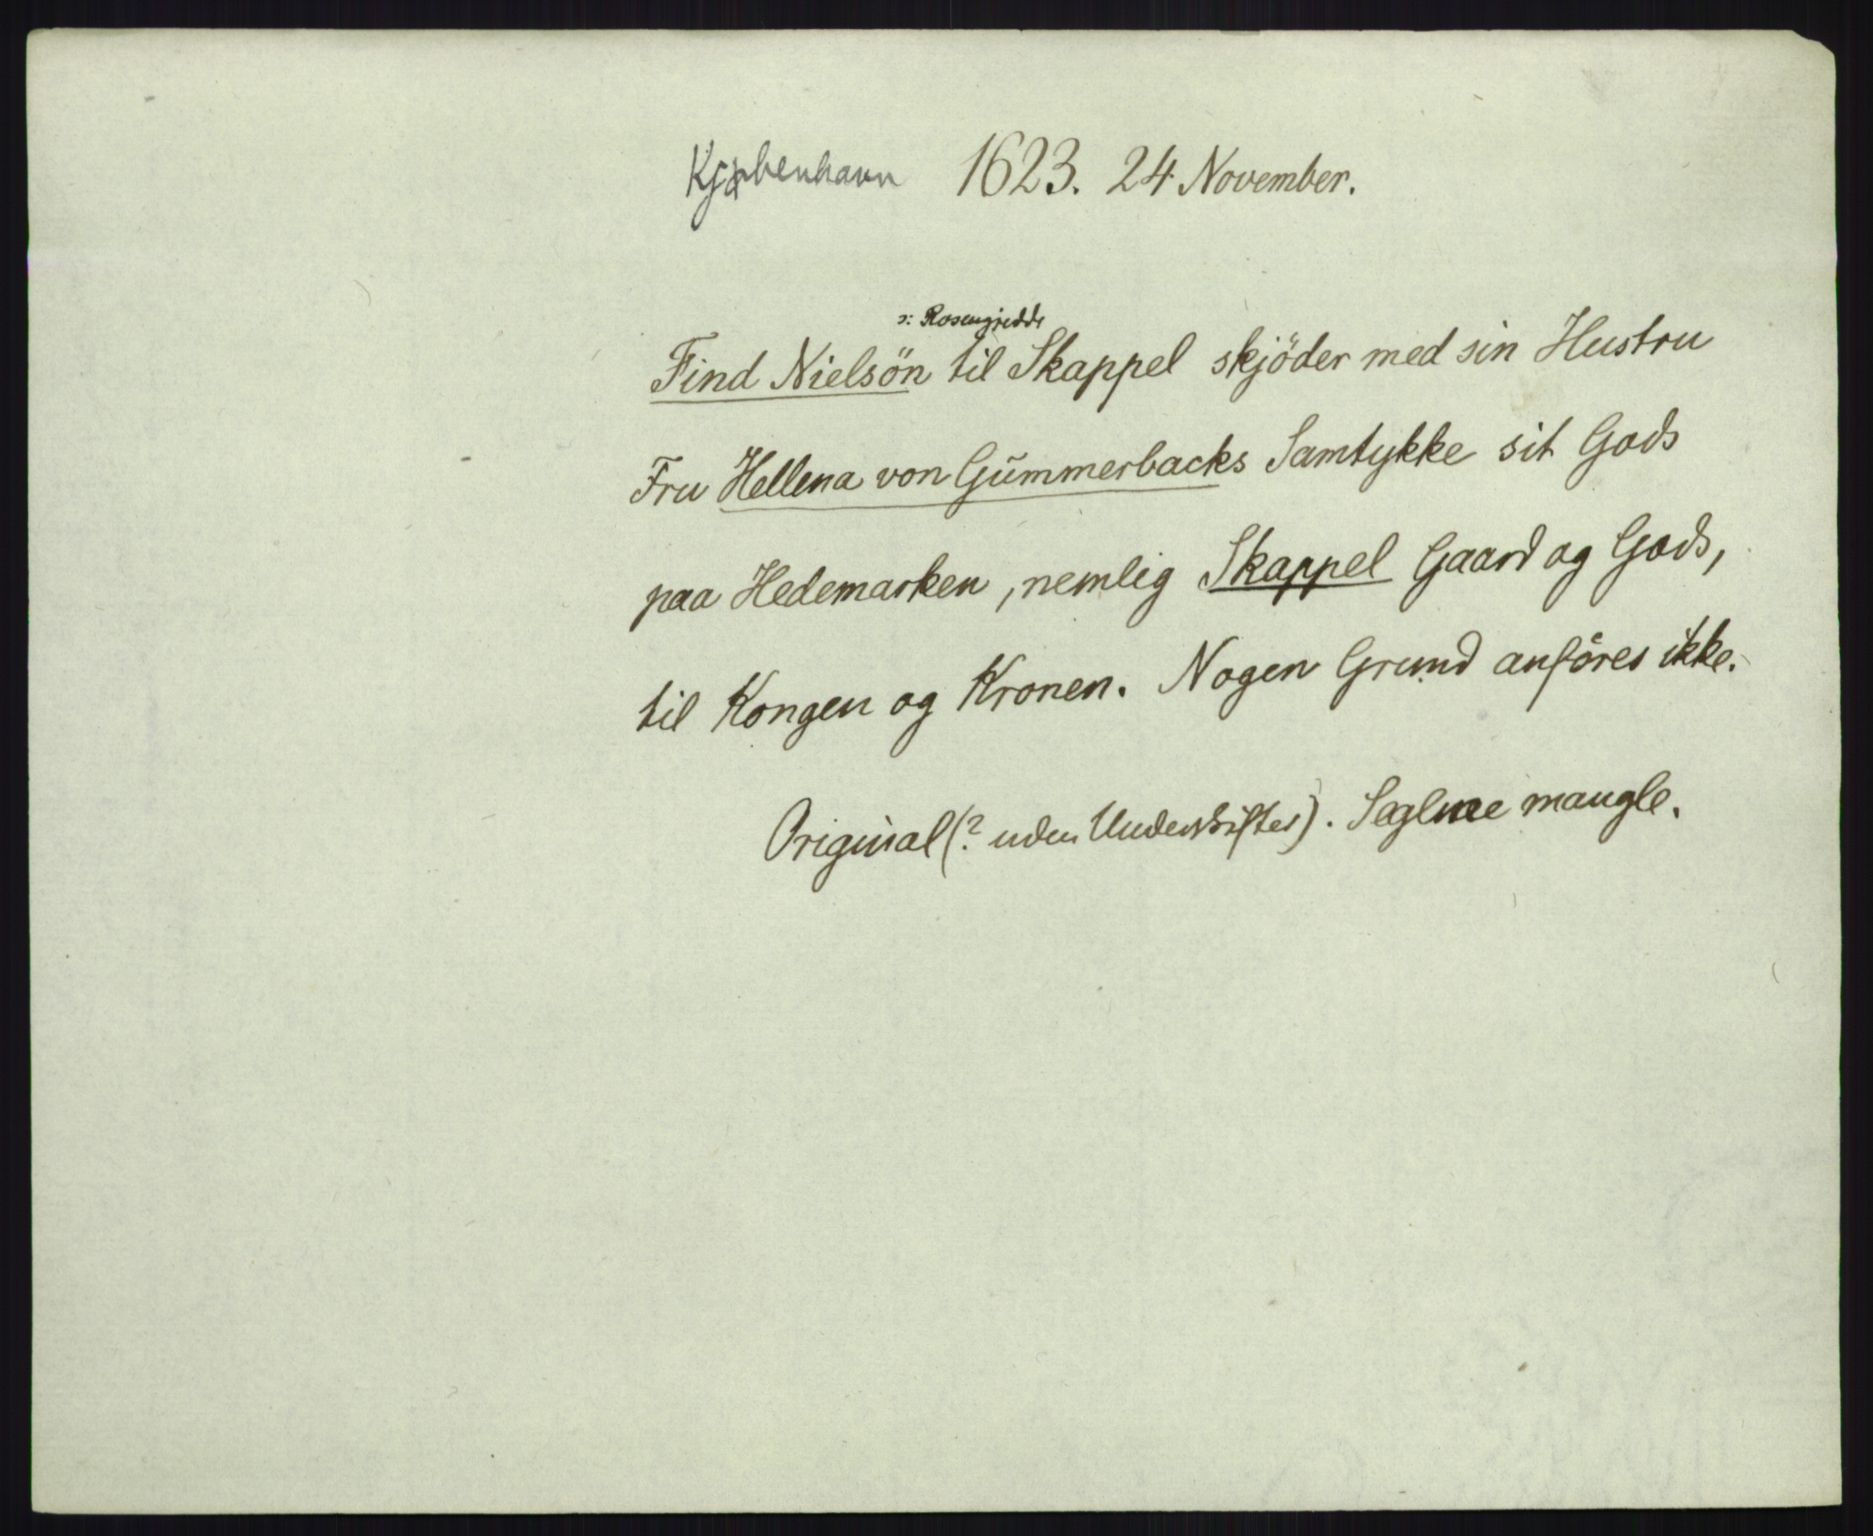 Kjøbenhavn 1623. 24 November.
ɔ: Rosengjedde
Find Nielsön til Skappel skjöder med sin Hustru
Fru Hellena von Gümmerbacks Samtykke sit Gods
paa Hedemarken, nemlig Skappel Gaard og Gods,
til Kongen og Kronen. Nogen Grund anföres ikke.
Original (? uden Underskrifter). Seglene mangle.